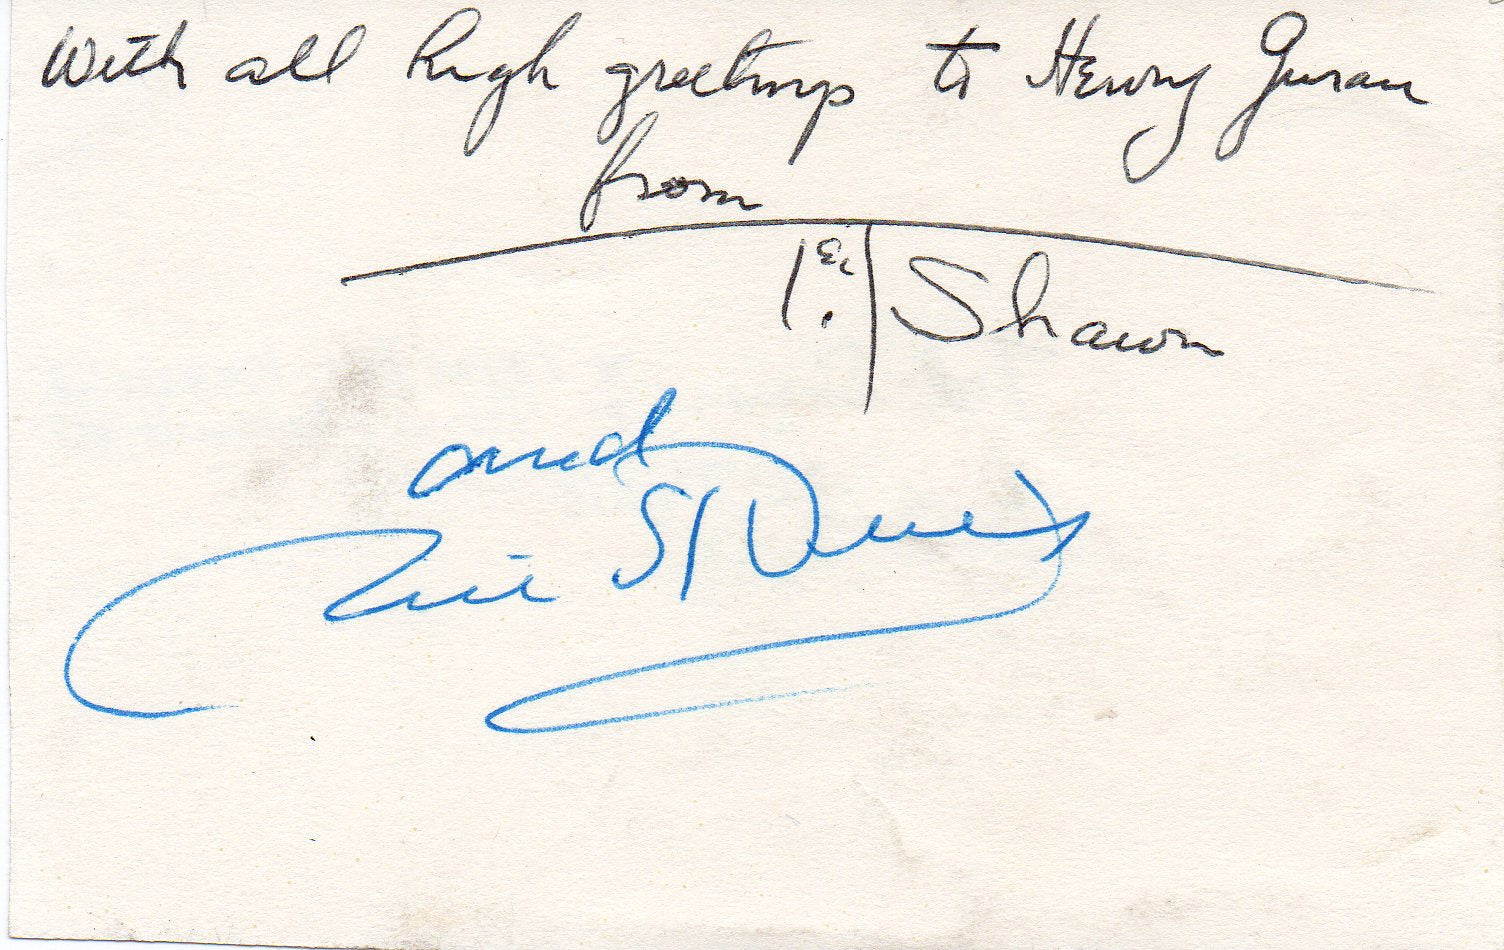 With all high greetings to Henry
from
Ted Shawn
and
Ruth St Denis